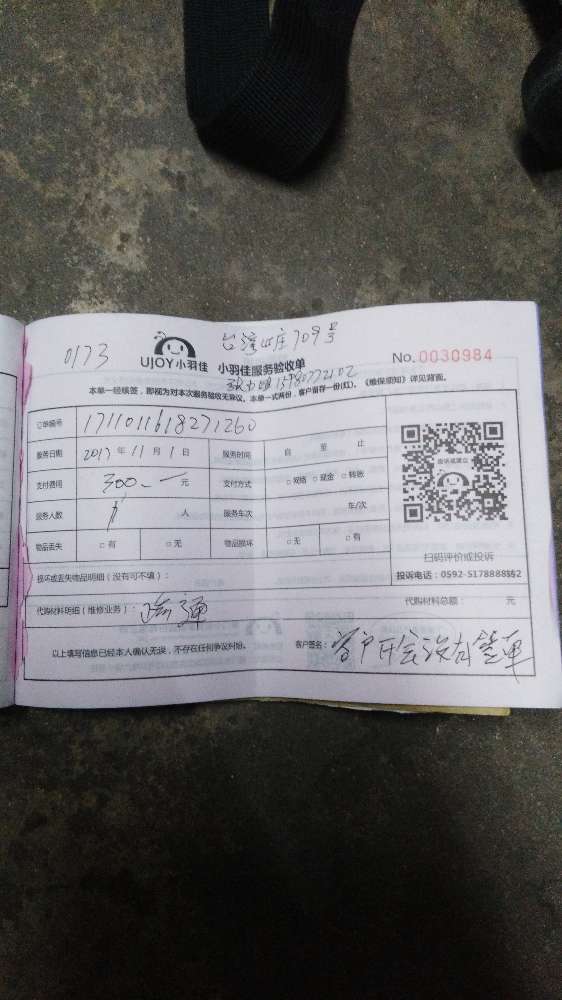 0173
台湾山庄709号
UJOY小羽佳 小羽佳服务验收单 No.0030984
15980772102
本单一经核签，即视为对本次服务验收无异议。本单一式两份，客户留存一份(红)。《维保须知》详见背面。
订单编号 1711011618271260
服务日期 2017年11月1日 服务时间 自 至 止
支付费用 300.- 元 支付方式 □网络 □现金 □转账
服务人数 1 人 服务车次 车/次
物品丢失 □有 □无 物品损坏 □无 □有
扫码评价或投诉
投诉电话：0592-5178888转2
损坏或丢失物品明细（没有可不填）：
代购材料明细（维修业务）： 代购材料总额： 元
以上填写信息已经本人确认无误，不存在任何争议纠纷。 客户签名： 客户开会没有签单